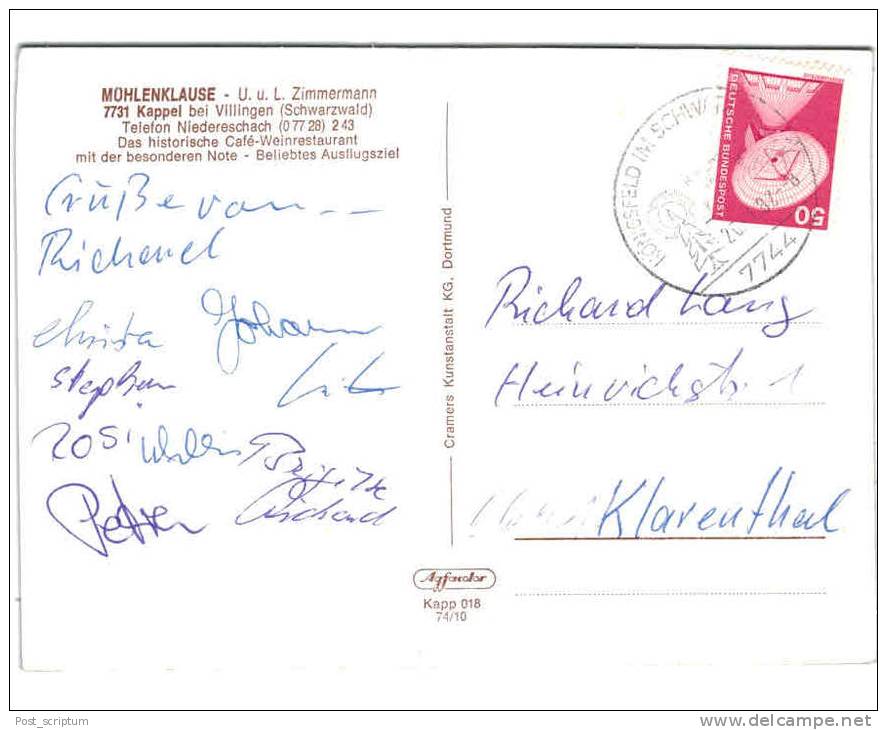 MÜHLENKLAUSE - U. u. L. Zimmermann
7731 Kappel bei Villingen (Schwarzwald)
Telefon Niedereschach (0 77 28) 2 43
Das historische Café-Weinrestaurant
mit der besonderen Note - Beliebtes Ausflugsziel
Grüße von ---
Richard
Christa Johann
Stephan
Rosi
Brigitte
Peter Richard
Cramers Kunstanstalt KG. Dortmund
Agfacolor
Kapp 018
74/10
KÖNIGSFELD IM SCHWA
7744
DEUTSCHE BUNDESPOST
50
Richard Lang
Heinrichstr. 1
Klarenthal
Post_scriptum
www.delcampe.net